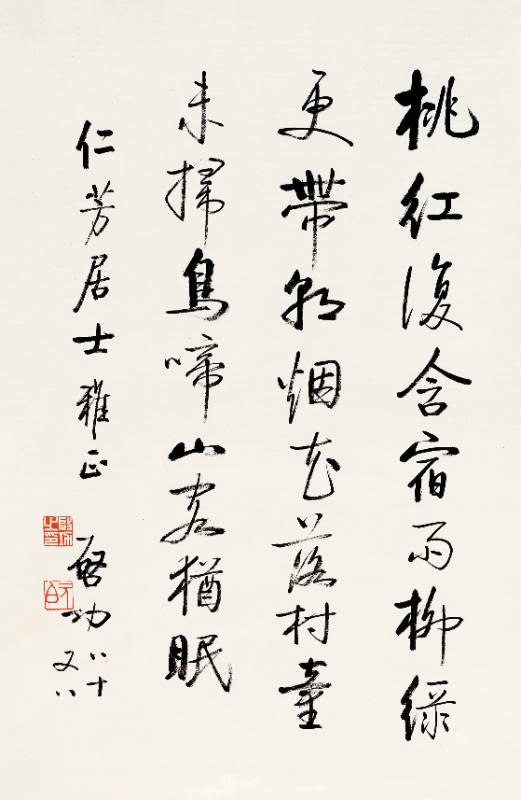 桃紅復含宿雨柳綠
更帶朝烟花落村童
未掃鳥啼山客猶眠
仁芳居士雅正
啓功八十
又八